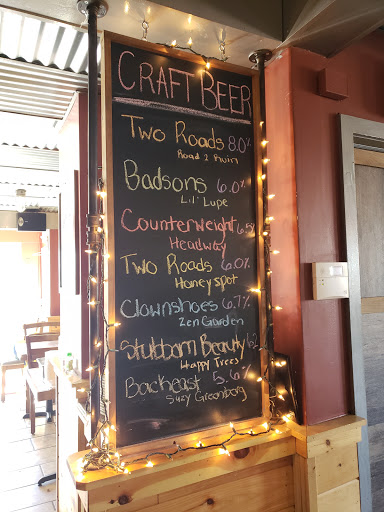 CRAFT BEER
Two Roads 8.0%
Road 2 Ruin
Badsons 6.0%
Lil' Lupe
Counterweight 6.5%
Headway
Two Roads 6.0%
Honeyspot
Clownshoes 6.7%
Zen Garden
Stubborn Beauty 6.2
Happy Trees
Backeast 5.6%
Suzy Greenberg